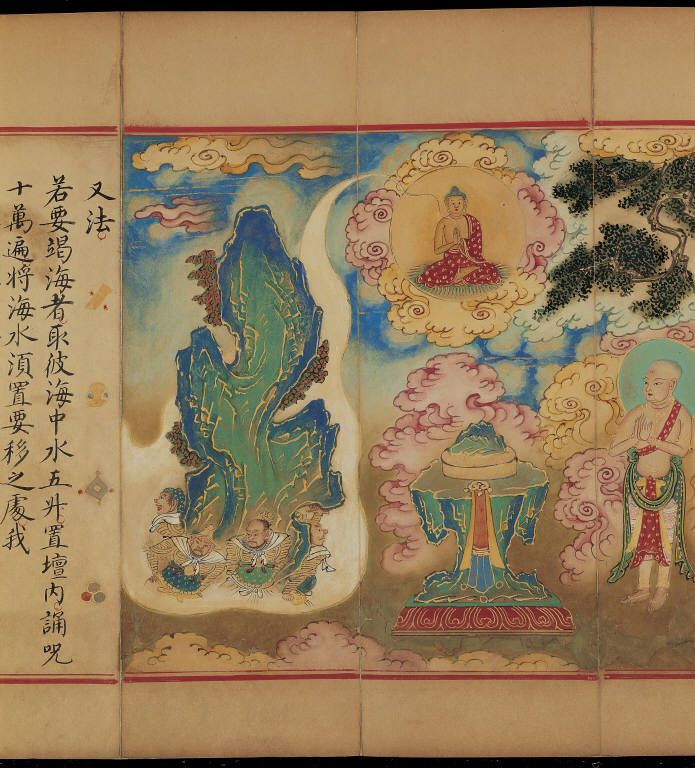 又法
若要竭海者取彼海中水五升置壇內誦呪
十萬遍將海水須置要移之處我